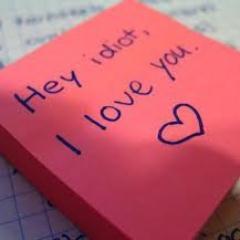 Hey idiot,
I love you.